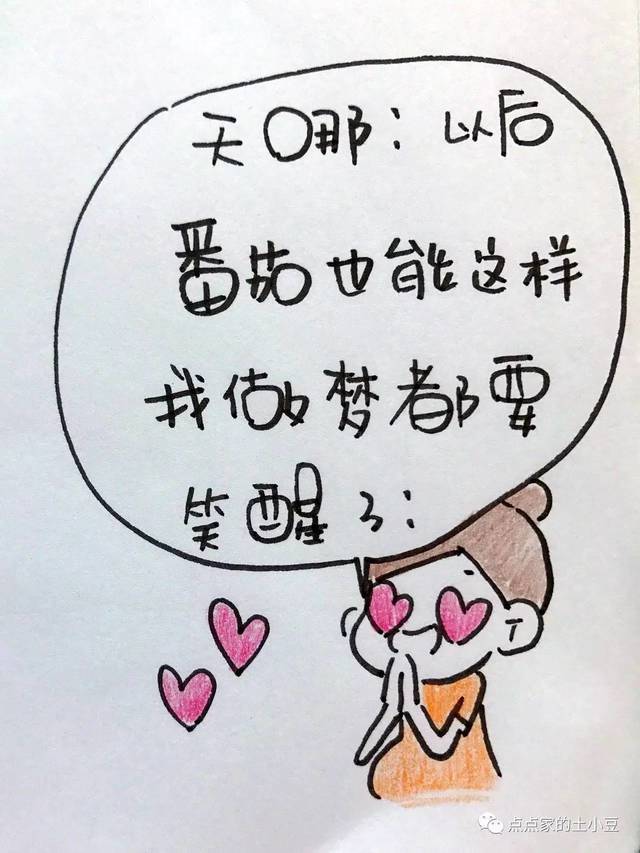 天哪：以后
番茄也能这样
我做梦都要
笑醒了：
点点家的土小豆